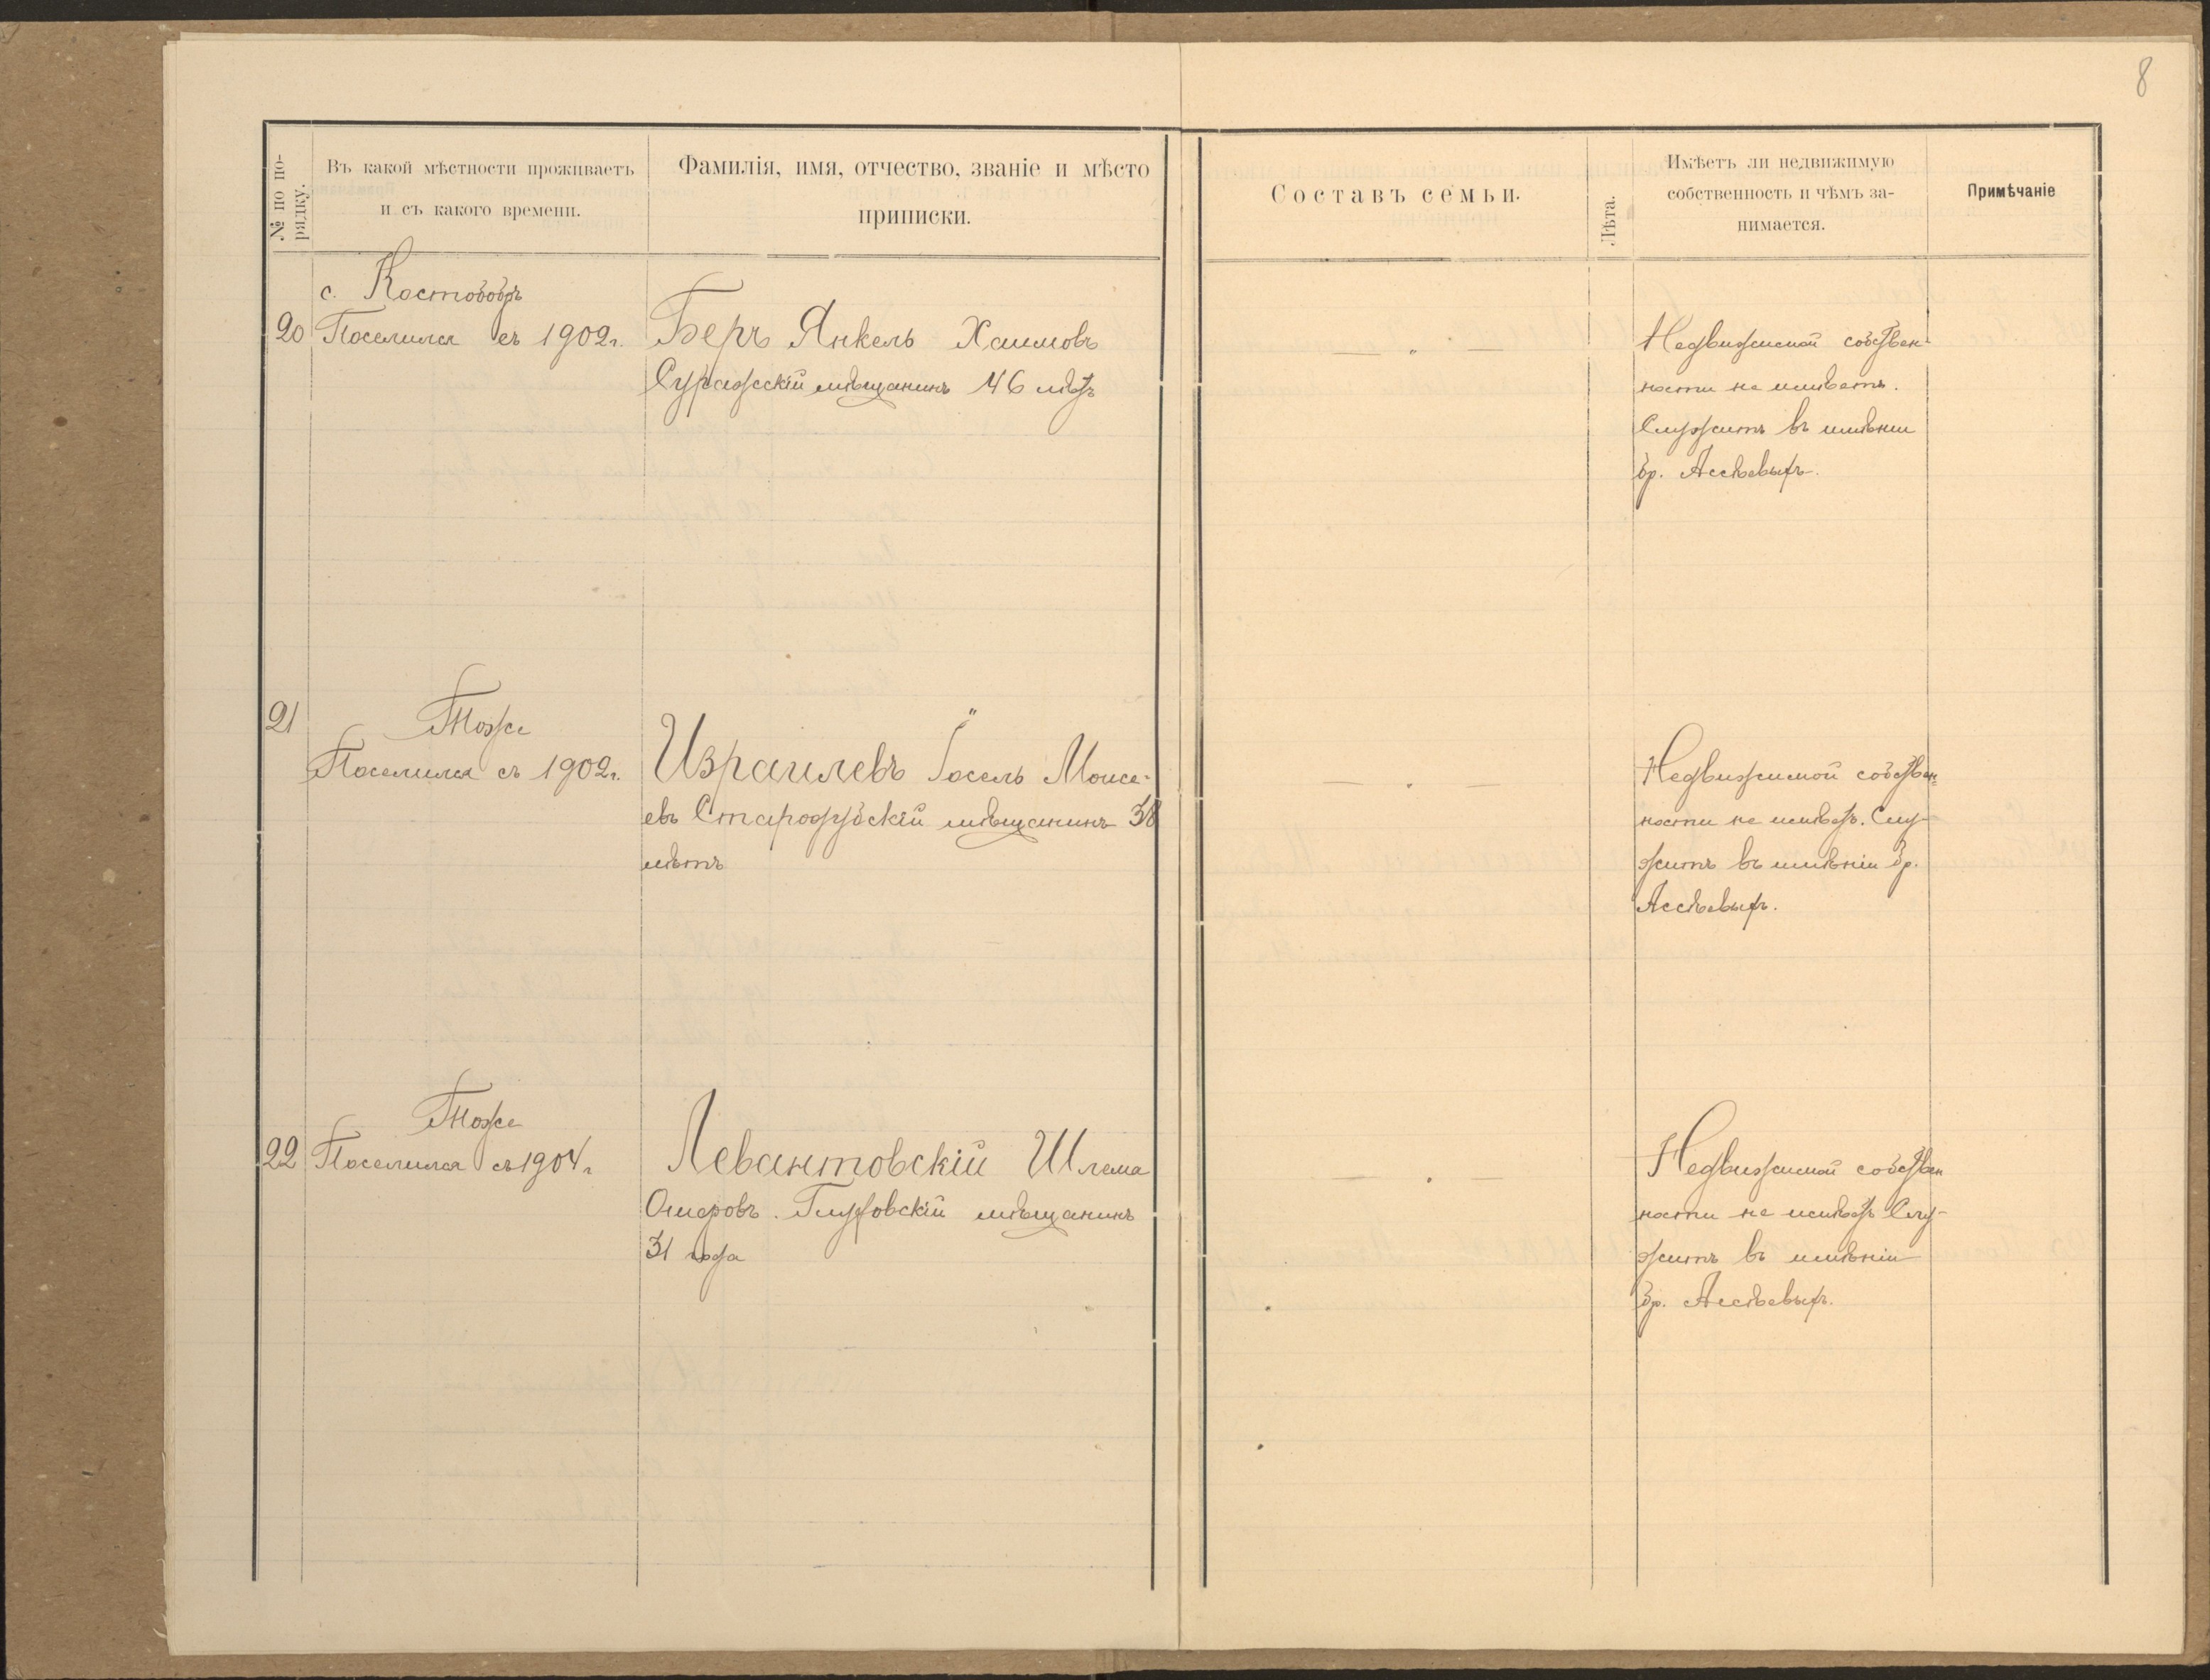 8
№ по по-
рядку.
Въ какой мѣстности проживаетъ
и съ какого времени.
Фамилія, имя, отчество, званіе и мѣсто
приписки.
Составъ семьи.
Лѣта.
Имѣетъ ли недвижимую
собственность и чѣмъ за-
нимается.
Примѣчаніе
с. Костобобръ
20 Поселился съ 1902 г.
Беръ Янкель Хаимовъ
Суражскій мѣщанинъ 46 лѣтъ
— " —
Недвижимой собствен-
ности не имѣетъ.
Служитъ въ имѣнии
бр. Ассѣевыхъ.
21
Тоже
Поселился съ 1902 г.
Израилевъ Іосель Моисе-
евъ Стародубскій мѣщанинъ 38
лѣтъ
— " —
Недвижимой собствен-
ности не имѣетъ. Слу-
житъ въ имѣніи бр.
Ассѣевыхъ.
Тоже
22 Поселился съ 1904 г
Левантовскій Шлема
Омеровъ. Глуховскій мѣщанинъ
31 года
— " —
Недвижимой собствен
ности не имѣетъ Слу-
житъ въ имѣніи
бр. Ассѣевыхъ.